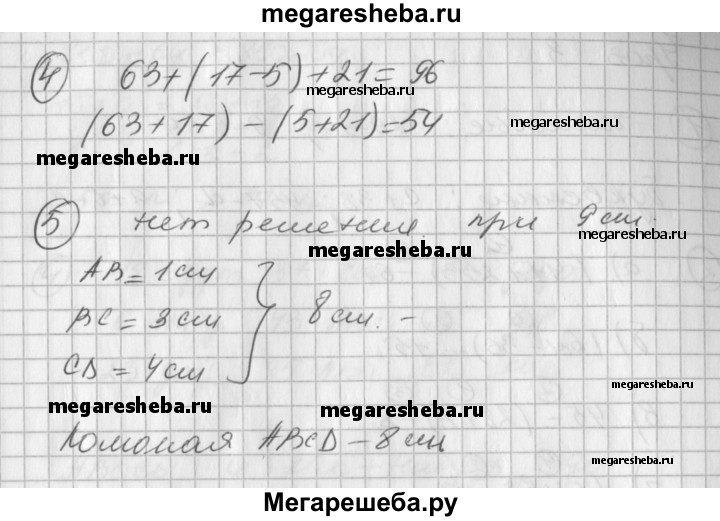 megaresheba.ru
④ 63+(17-5)+21=96
megaresheba.ru
(63+17)-(5+21)=54
megaresheba.ru
megaresheba.ru
⑤ нет решения. при 9 см.
megaresheba.ru
AB=1 см
BC=3 см } 8 см. -
CD=4 см
megaresheba.ru
megaresheba.ru
megaresheba.ru
Ломаная ABCD-8 см
megaresheba.ru
Мегарешеба.ру